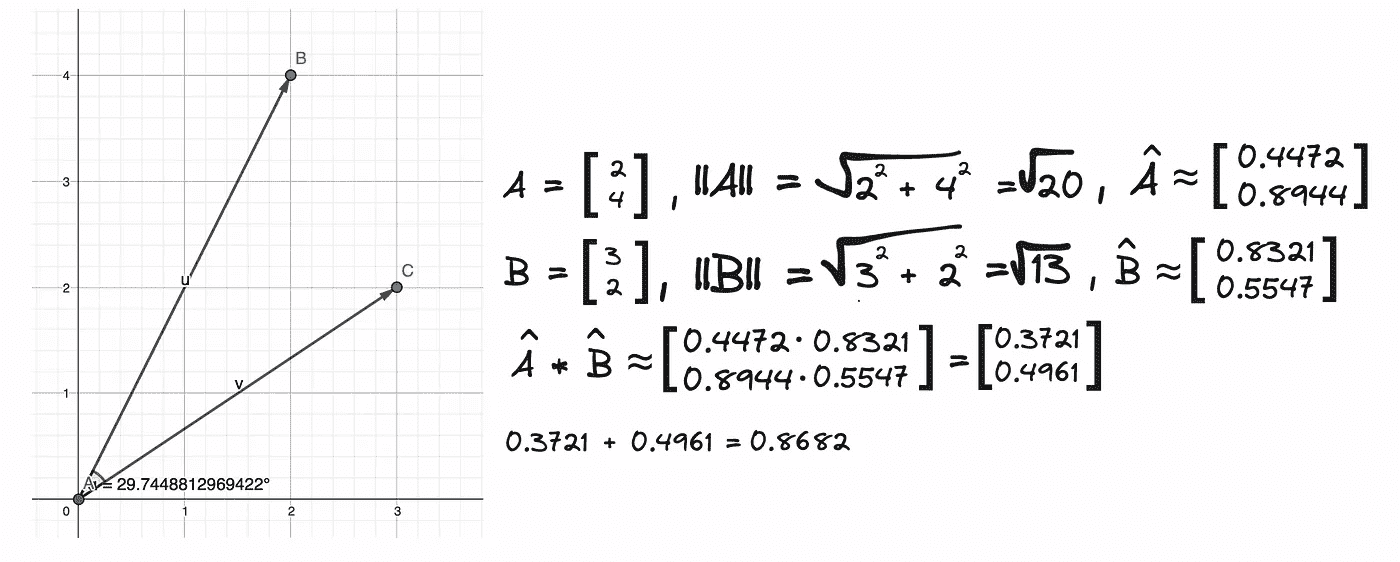 B
4
3
u
C
2
v
1
= 29.7448812969422°
0 1 2 3
A = [2 4], ||A|| = √2² + 4² = √20, Â ≈ [0.4472 0.8944]
B = [3 2], ||B|| = √3² + 2² = √13, B̂ ≈ [0.8321 0.5547]
Â * B̂ ≈ [0.4472 · 0.8321 0.8944 · 0.5547] = [0.3721 0.4961]
0.3721 + 0.4961 = 0.8682